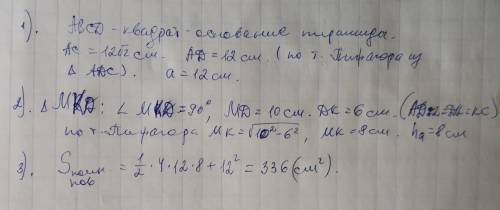 1). ABCD - квадрат - основание пирамиды.
AC = 12√2 см. AD = 12 см. (по т. Пифагора из
Δ ADC). a = 12 см.
2). Δ MKD: ∠ MKD = 90°, MD = 10 см. DK = 6 см. (
по т. Пифагора MK = √10²-6², MK = 8 см. hₐ = 8 см
3). Sполн пов = 1/2 · 4 · 12 · 8 + 12² = 336 (см²).